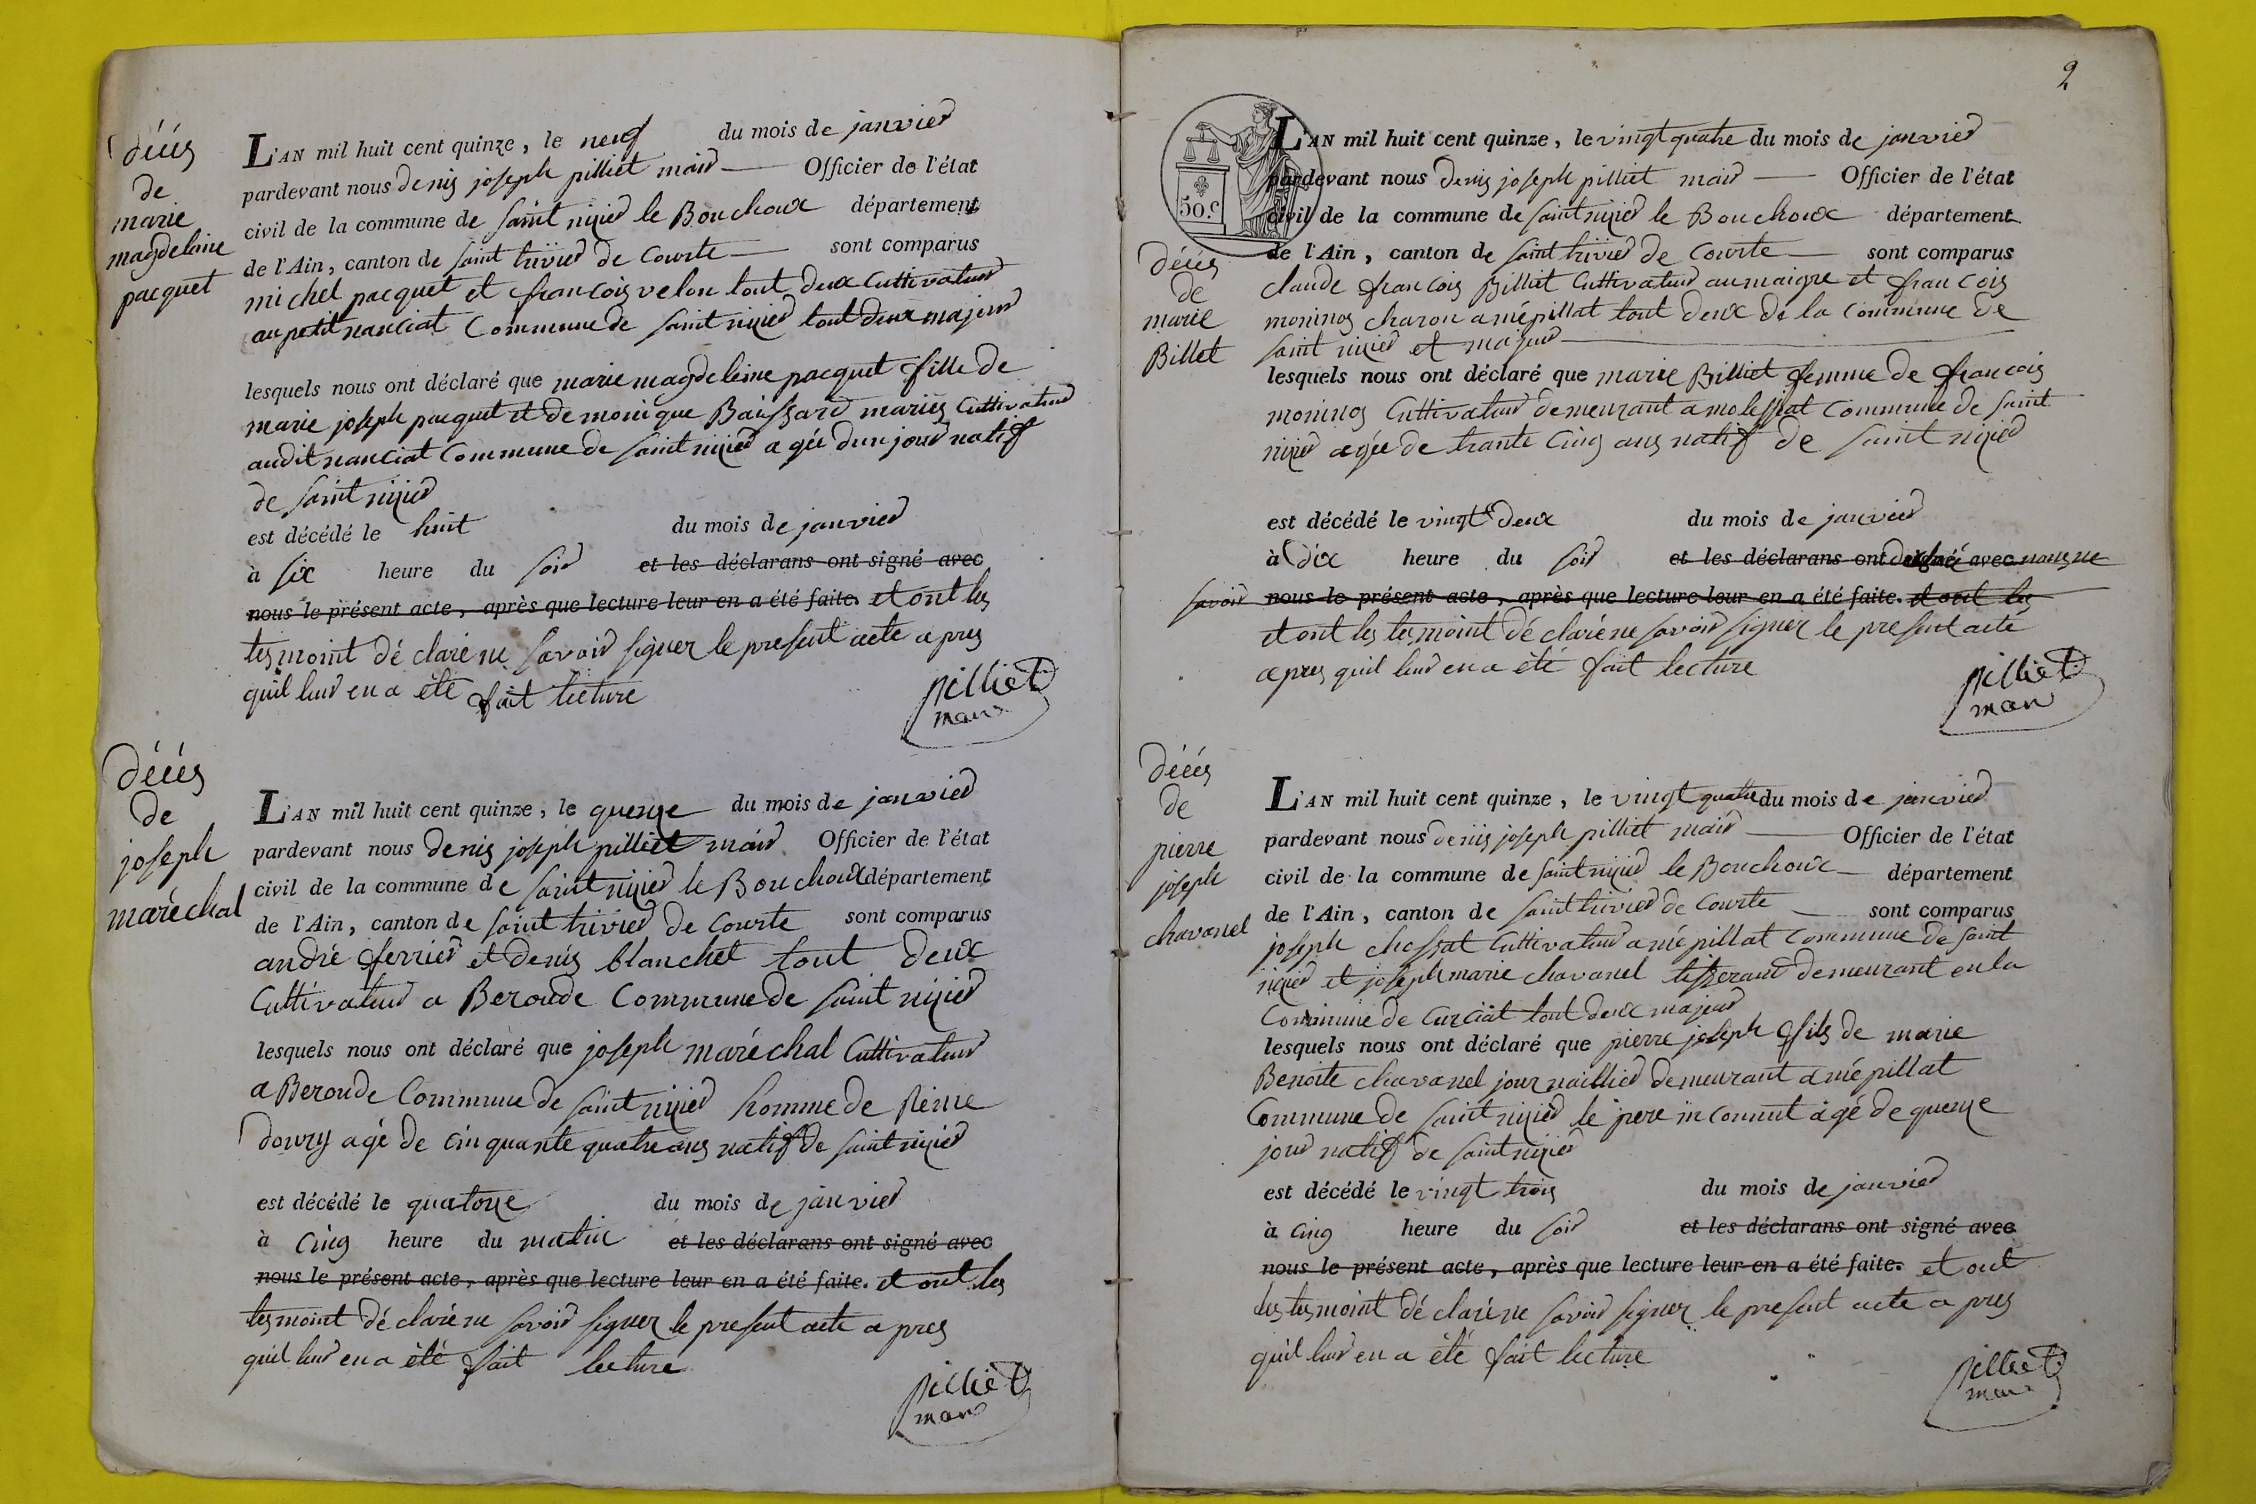 décés
de
marie
magdelaine
pacquet
L'AN mil huit cent quinze, le neuf du mois de janvier
pardevant nous denis joseph pilliet mair Officier de l'état
civil de la commune de saint nizier le Bouchoux département
de l'Ain, canton de saint trivier de Courte sont comparus
michel pacquet et francois velon tout deux Cultivateur
au petit nanciat Commune de saint nizier tout deux majeur
lesquels nous ont déclaré que marie magdeleine pacquet fille de
marie joseph pacquet et de monique Baissard mariés Cultivateur
audit nanciat Commune de saint nizier agée d'un jour natif
de saint nizier
est décédé le huit du mois de janvier
à six heure du soir et les déclarans ont signé avec
nous le présent acte, après que lecture leur en a été faite. et ont les
tesmoint déclaré ne savoir signer le present acte apres
quil leur en a été fait lecture
pilliet
mair
décés
de
joseph
maréchal
L'AN mil huit cent quinze, le quenze du mois de janvier
pardevant nous denis joseph pilliet mair Officier de l'état
civil de la commune de saint nizier le Bouchoux département
de l'Ain, canton de saint trivier de Courte sont comparus
andré ferrier et denis blanchet tout deux
Cultivateur a Beroude Commune de saint nizier
lesquels nous ont déclaré que joseph maréchal Cultivateur
a Beroude Commune de saint nizier homme de Reine
douvry agé de cinquante quatre ans natif de saint nizier
est décédé le quatorze du mois de janvier
à cinq heure du matin et les déclarans ont signé avec
nous le présent acte, après que lecture leur en a été faite. et ont les
tesmoint déclaré ne savoir signer le present acte apres
quil leur en a été fait lecture
pilliet
mair
2
50.c
décés
de
marie
Billet
L'AN mil huit cent quinze, le vingt quatre du mois de janvier
pardevant nous denis joseph pilliet mair Officier de l'état
civil de la commune de saint nizier le Bouchoux département
de l'Ain, canton de saint trivier de Courte sont comparus
claude francois Billiet Cultivateur au maigre et francois
moninos charon a mépillat tout deux de la Commune de
saint nizier et majeur
lesquels nous ont déclaré que marie Billiet femme de francois
moninos Cultivateur demeurant a molessiat Commune de saint
nizier agée de trante cinq ans natif de saint nizier
est décédé le vingt deux du mois de janvier
à dix heure du soir et les déclarans ont signé avec nous ne
savoir nous le présent acte, après que lecture leur en a été faite. et ont les
et ont les tesmoint déclaré ne savoir signer le present acte
apres quil leur en a été fait lecture
pilliet
mair
décés
de
pierre
joseph
chavanel
L'AN mil huit cent quinze, le vingt quatre du mois de janvier
pardevant nous deniis joseph pilliet mair Officier de l'état
civil de la commune de saint nizier le Bouchoux département
de l'Ain, canton de saint trivier de Courte sont comparus
joseph chossat Cultivateur a mépillat Commune de saint
nizier et joseph marie chavanel tisserand demeurant en la
Commune de Curciat tout deux majeur
lesquels nous ont déclaré que pierre joseph fils de marie
Benoite chavanel journaillier demeurant a mépillat
Commune de saint nizier le pere inconnut agé de quenze
jour natif de saint nizier
est décédé le vingt trois du mois de janvier
à cinq heure du soir et les déclarans ont signé avec
nous le présent acte, après que lecture leur en a été faite. et ont
les tesmoint déclaré ne savoir signer le present acte apres
quil leur en a été fait lecture
pilliet
mair